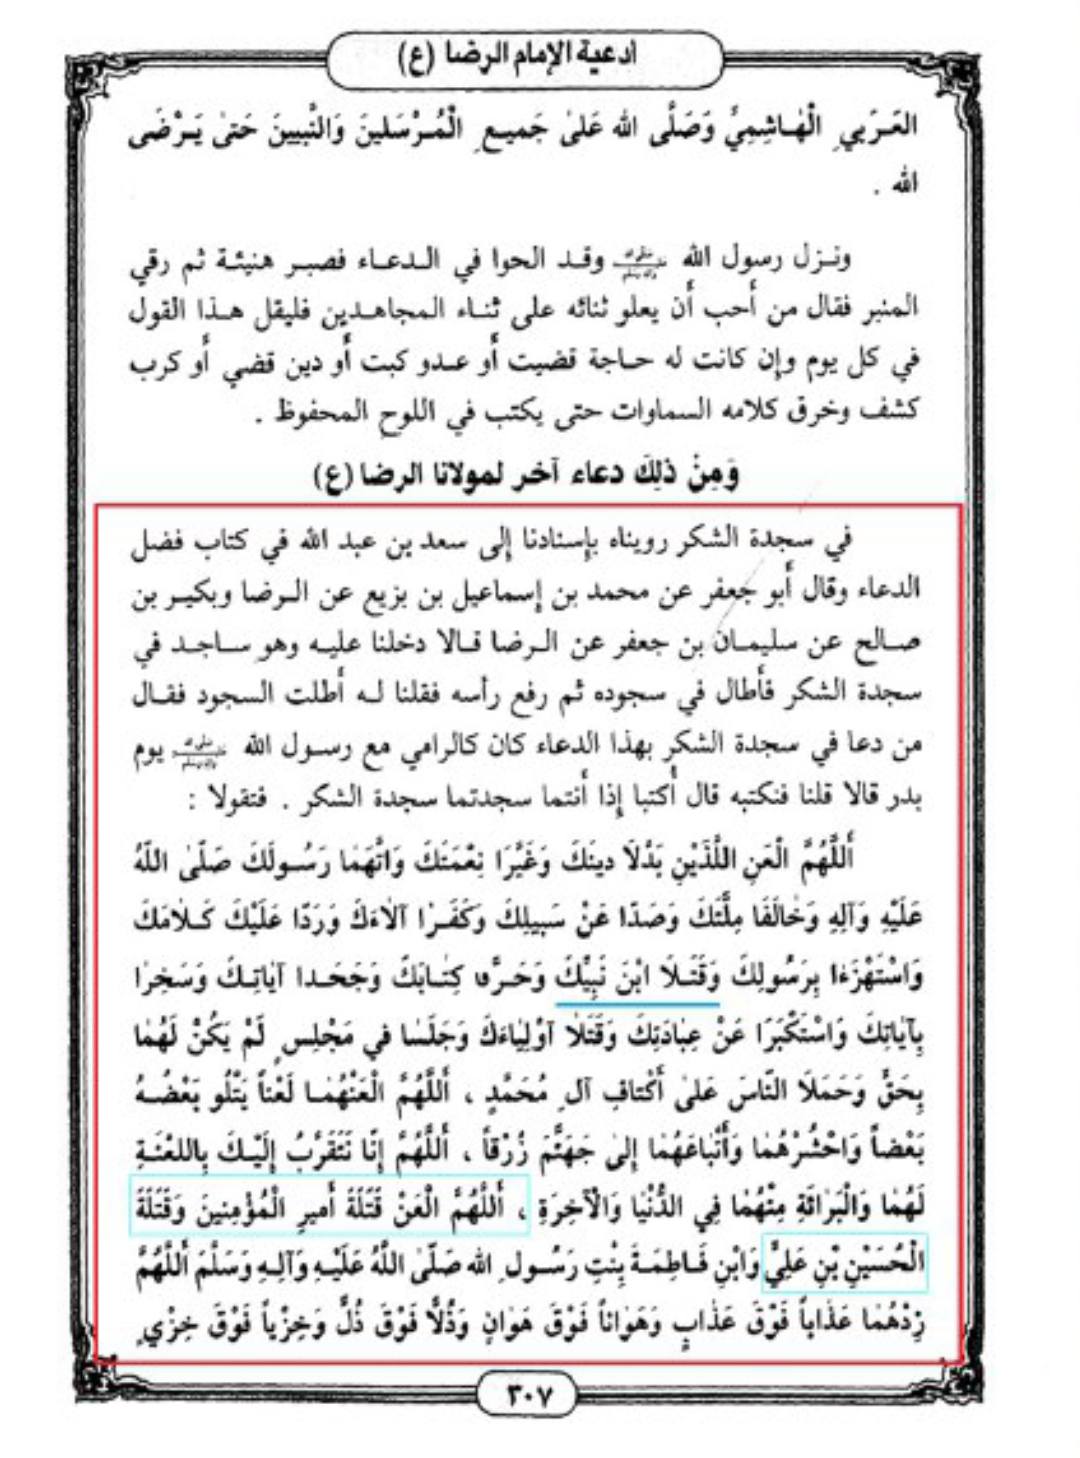 أدعية الإمام الرضا (ع)
العَرَبي الْهاشِمِيُّ وَصَلَّى الله عَلىٰ جَميع الْمُرْسَلينَ وَالنَّبيينَ حَتىٰ يَرْضَى
الله .
ونزل رسول الله ﷺ وقد الحوا في الدعاء فصبر هنيئة ثم رقي
المنبر فقال من أحب أن يعلو ثنائه على ثناء المجاهدين فليقل هذا القول
في كل يوم وإن كانت له حاجة قضيت أو عدو كبت أو دين قضي أو كرب
كشف وخرق كلامه السماوات حتى يكتب في اللوح المحفوظ .
وَمِنْ ذلِكَ دعاء آخر لمولانا الرضا (ع)
في سجدة الشكر رويناه بإسنادنا إلى سعد بن عبد الله في كتاب فضل
الدعاء وقال أبو جعفر عن محمد بن إسماعيل بن بزيع عن الرضا وبكير بن
صالح عن سليمان بن جعفر عن الرضا قالا دخلنا عليه وهو ساجد في
سجدة الشكر فأطال في سجوده ثم رفع رأسه فقلنا له أطلت السجود فقال
من دعا في سجدة الشكر بهذا الدعاء كان كالرامي مع رسول الله ﷺ يوم
بدر قالا قلنا فنكتبه قال أكتبا إذا أنتما سجدتما سجدة الشكر . فتقولا :
أَللَّهُمَّ الْعَنِ اللَّذَيْنِ بَدَّلَا دينَكَ وَغَيَّرَا نِعْمَتَكَ وَاتَّهَمَا رَسُولَكَ صَلّىٰ اللّهُ
عَلَيْهِ وَآلِهِ وَخالَفَا مِلَّتَكَ وَصَدّا عَنْ سَبيلِكَ وَكَفَرا آلاءَكَ وَرَدّا عَلَيْكَ كَلامَكَ
وَاسْتَهْزَءٰا بِرَسُولِكَ وَقَتَلَا ابْنَ نَبِيِّكَ وَحَرَّفا كِتابَكَ وَجَحَدا آياتِكَ وَسَخِرا
بِآياتِكَ وَاسْتَكْبَرَا عَنْ عِبادَتِكَ وَقَتَلا أوْلِياءَكَ وَجَلَسا في مَجْلِسٍ لَمْ يَكُنْ لَهُما
بِحَقٍّ وَحَمَلَا النّاسَ عَلىٰ أَكْتافِ آلِ مُحَمَّدٍ ، أَللَّهُمَّ الْعَنْهُما لَعْناً يَتْلُو بَعْضُهُ
بَعْضاً وَاحْشُرْهُما وَأَتْباعَهُما إلىٰ جَهَنَّمَ زُرْقاً ، أَللَّهُمَّ إنّا نَتَقَرَّبُ إلَيْكَ بِاللعْنَةِ
لَهُما وَالْبَرائَةِ مِنْهُما فِي الدُّنْيا وَالْآخِرَةِ ، أَللَّهُمَّ الْعَنْ قَتَلَةَ أميرِ الْمُؤْمِنينَ وَقَتَلَةَ
الْحُسَيْنِ بْنِ عَلِيٍّ وَابْنِ فَاطِمَةَ بِنْتِ رَسُولِ الله صَلّىٰ اللَّهُ عَلَيْهِ وَآلِهِ وَسَلَّمَ أَللَّهُمَّ
زِدْهُما عَذاباً فَوْقَ عَذابٍ وَهَواناً فَوْقَ هَوانٍ وَذُلّاً فَوْقَ ذُلٍّ وَخِزْياً فَوْقَ خِزْيٍ
٣٠٧